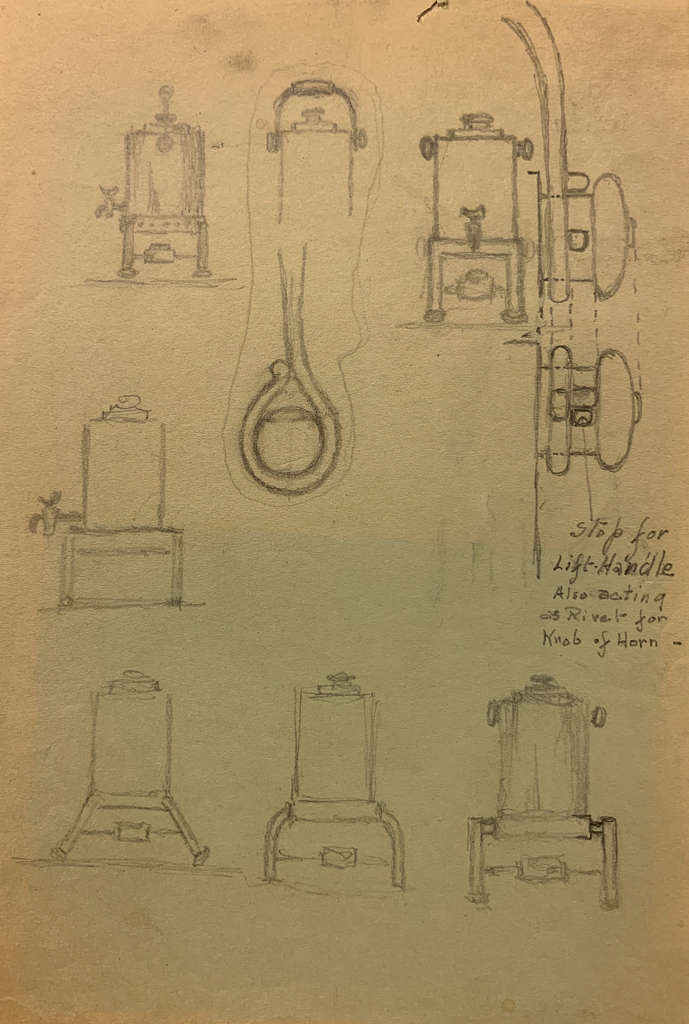 Stop for
Lift-Handle
Also acting
as Rivet for
Knob of Horn -